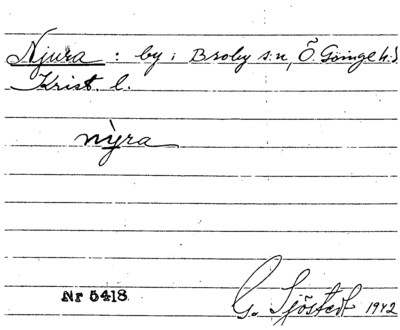 Njura : by i Broby s:n, Ö. Göinge h:d
Krist. l.
nỳra
Nr 5418.
G. Sjöstedt 1942